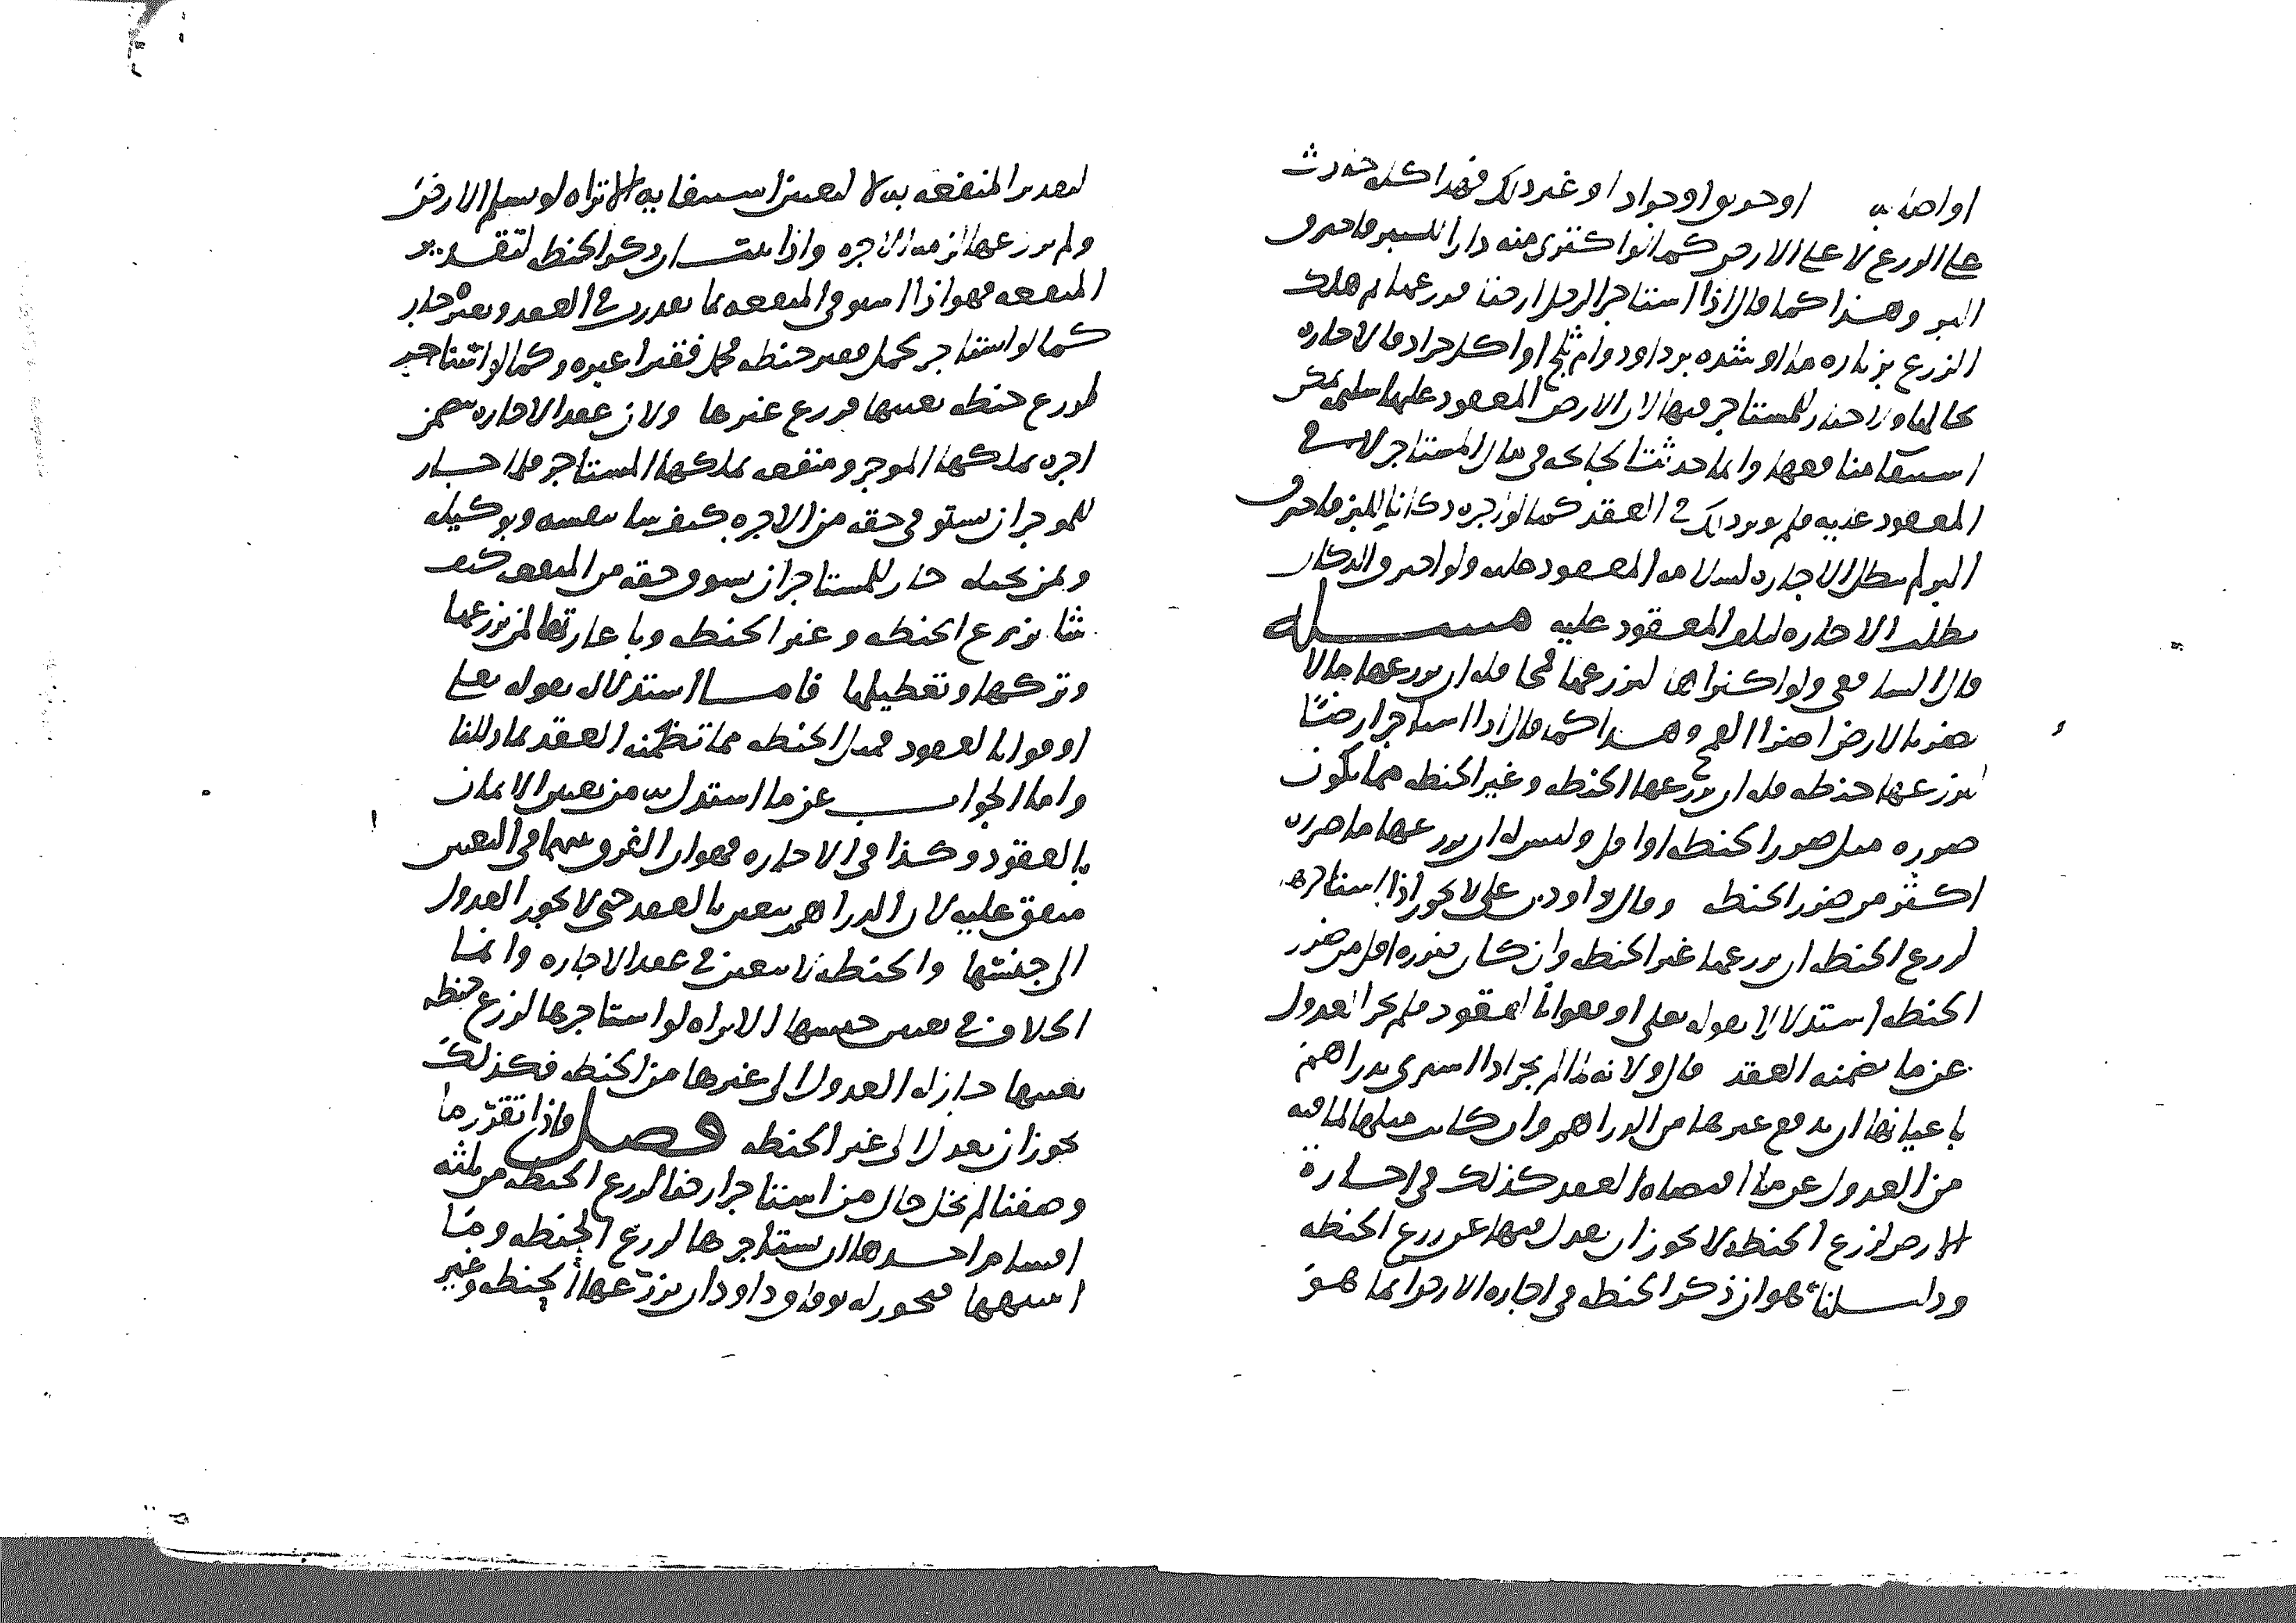 او اصابه حريق او جراد او غير ذلك فهذا كله حدث
على الزرع لا على الارض كما لو اكترى منه دارا للبز فاحترق
البز وهذا كما قال اذا استاجر الرجل ارضا فزرعها ثم هلك
الزرع بزياده ماء او شده برد او دوام ثلج او اكل جراد فالاجاره
بحالها ولا خيار للمستاجر فيها لان الارض المعقود عليها سليمه يمكن
استيفا منافعها وانما حدثت الجائحه في مال المستاجر لا في
المعقود عليه فلم يوثر ذلك في العقد كما لو اجره دكانا للبز فاحترق
البز لم تبطل الاجاره لسلامه المعقود عليه ولو احترق الدكان
بطلت الاجاره لتلف المعقود عليه مسله
قال الشافعي ولو اكتراها ليزرعها قمحا فله ان يزرعها ما لا
يضر بالارض اضرار القمح وهذا كما قال اذا استاجر ارضا
ليزرعها حنطه فله ان يزرعها الحنطه وغير الحنطه مما يكون
ضرره مثل ضرر الحنطه او اقل وليس له ان يزرعها ما ضرره
اكثر من ضرر الحنطه وقال داود بن علي لا يجوز اذا استاجرها
لزرع الحنطه ان يزرعها غير الحنطه وان كان ضرره اقل من ضرر
الحنطه استدلالا بقوله تعلى اوفوا بالعقود فلم يجز العدول
عن ما تضمنه العقد قال ولانه لما لم يجز اذا اشترى بدراهم
باعيانها ان يدفع غيرها من الدراهم وان كانت مثلها لما فيه
من العدول عن ما اقتضاه العقد كذلك في اجاره
الارض لزرع الحنطه لا يجوز ان يعدل فيها عن زرع الحنطه
ودليلنا هو ان ذكر الحنطه في اجاره الارض انما هو
لتقدير المنفعه به لا لتعيين استيفايه الا تراه لو تسلم الارض
ولم يزرعها لزمته الاجره واذا كان ذكر الحنطه لتقدير
المنفعه فهو اذا استوفى المنفعه بما تقدرت في العقد وبغيره جاز
كما لو استاجر لحمل قفيز حنطه فحمل قفيزا غيره وكما لو استاجر
لزرع حنطه بعينها فزرع غيرها ولان عقد الاجاره يتضمن
اجره يملكها الموجر ومنفعه يملكها المستاجر فلما جاز
للموجر ان يستوفي حقه من الاجره كيف شا بنفسه وبوكيله
وبمن يحيله جاز للمستاجر ان يستوفي حقه من المنفعه كيف
شا بزرع الحنطه وغير الحنطه وباعارتها لمن يزرعها
وتركها وتعطيلها فاما استدلاله بقوله تعلى
اوفوا بالعقود فمثل الحنطه مما تضمنه العقد بما دللنا
واما الجواب عن ما استدل به من تعيين الاثمان
بالعقود وكذا في الاجاره فهو ان الفرق بينهما في التعيين
متفق عليه لان الدراهم تتعين بالعقد حتى لا يجوز العدول
الى جنسها والحنطه لا تتعين في عقد الاجاره وانما
الخلاف في تعيين جنسها الا تراه لو استاجرها لزرع حنطه
بعينها جاز له العدول الى غيرها من الحنطه فكذلك
يجوز ان يعدل الى غير الحنطه فصل فاذا تقرر ما
وصفنا لم يخل حال من استاجر ارضا لزرع الحنطه من ثلثه
اقسام احدها ان يستاجرها لزرع الحنطه وما
اشبهها فيجوز له بوفاق داود ان يزرعها الحنطه وغير